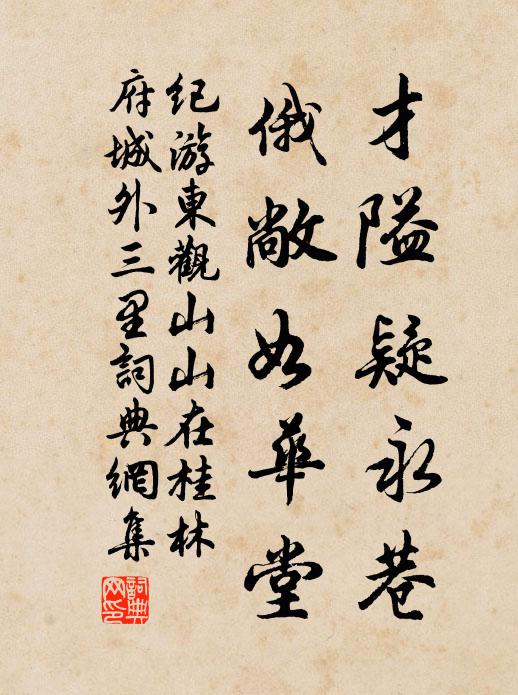 才隘疑永巷
俄敞如华堂
纪游東觀山山在桂林
府城外三里詞典網集
詞典网印